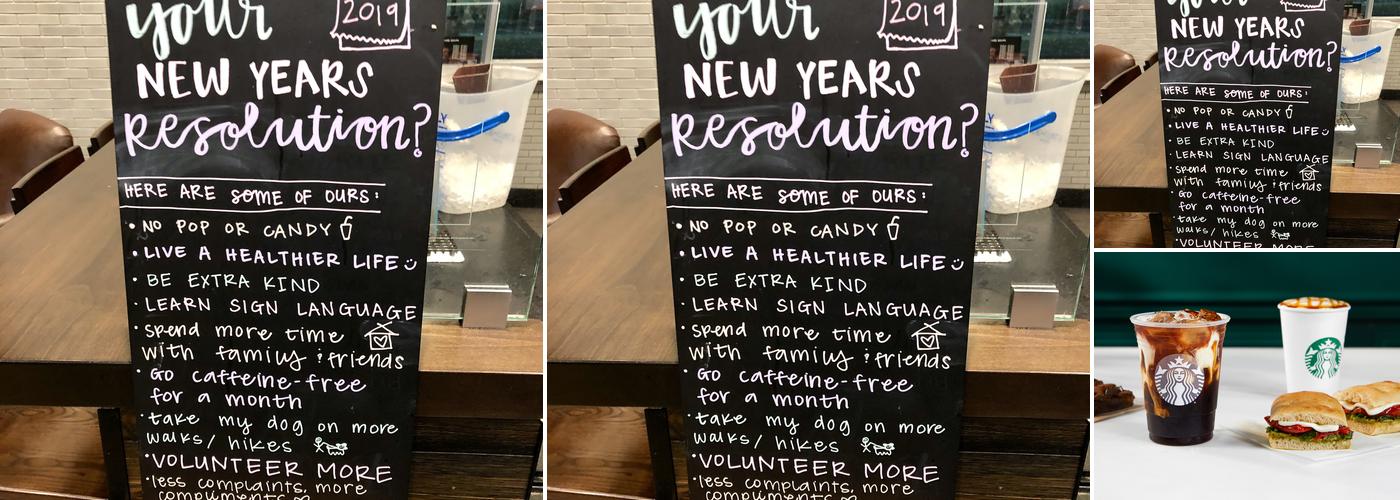 your
2019
NEW YEARS
Resolution?
HERE ARE SOME OF OURS:
• NO POP OR CANDY
• LIVE A HEALTHIER LIFE
• BE EXTRA KIND
• LEARN SIGN LANGUAGE
• spend more time
with family & friends
• Go caffeine-free
for a month
• take my dog on more
walks/ hikes
• VOLUNTEER MORE
• less complaints, more
compliments
your
2019
NEW YEARS
Resolution?
HERE ARE SOME OF OURS:
• NO POP OR CANDY
• LIVE A HEALTHIER LIFE
• BE EXTRA KIND
• LEARN SIGN LANGUAGE
• spend more time
with family & friends
• Go caffeine-free
for a month
• take my dog on more
walks/ hikes
• VOLUNTEER MORE
• less complaints, more
compliments
NEW YEARS
Resolution?
HERE ARE SOME OF OURS:
• NO POP OR CANDY
• LIVE A HEALTHIER LIFE
• BE EXTRA KIND
• LEARN SIGN LANGUAGE
• spend more time
with family & friends
• Go caffeine-free
for a month
• take my dog on more
walks/ hikes
• VOLUNTEER MORE